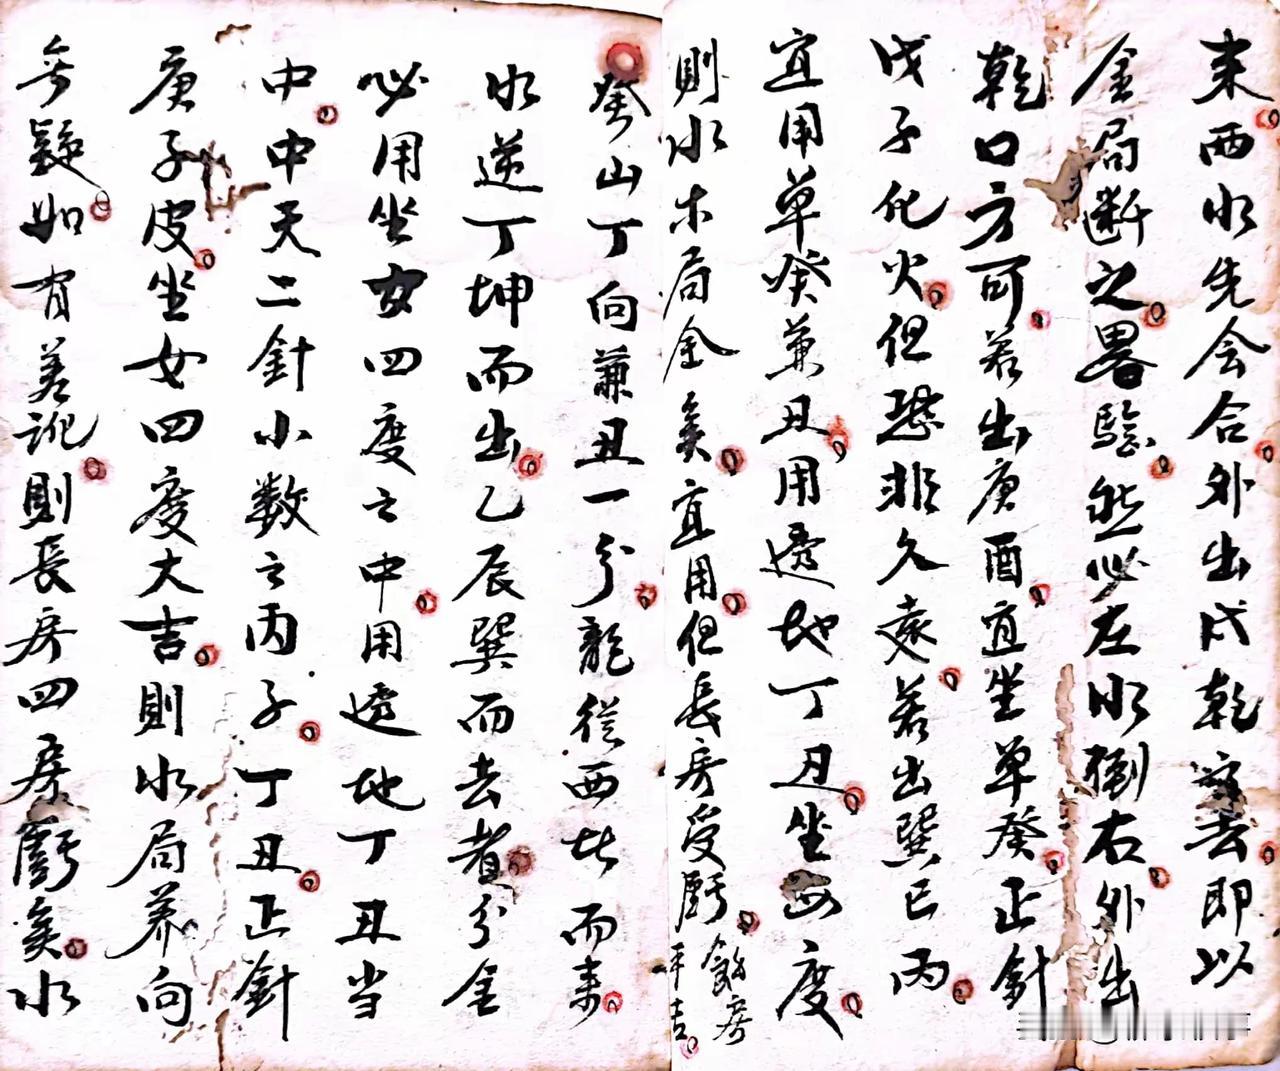 来两水先会合外出戌乾亥去即以
金局断之畧驗然必左水倒右外出
乾口方可若出庚酉宜坐单癸正針
戊子化火但恐非久遠若出巽巳丙
宜用单癸兼丑用透地丁丑坐女四度
則水木局全矣宜用但長房受虧餘房平吉
癸山丁向兼丑一分龍從西北而来
水逆丁坤而出乙辰巽而去者分金
必用坐女四度之中用透地丁丑当
中中天二針小数之丙子丁丑正針
庚子皮坐女四度大吉則水局养向
無疑如有差訛則長房四房虧矣水